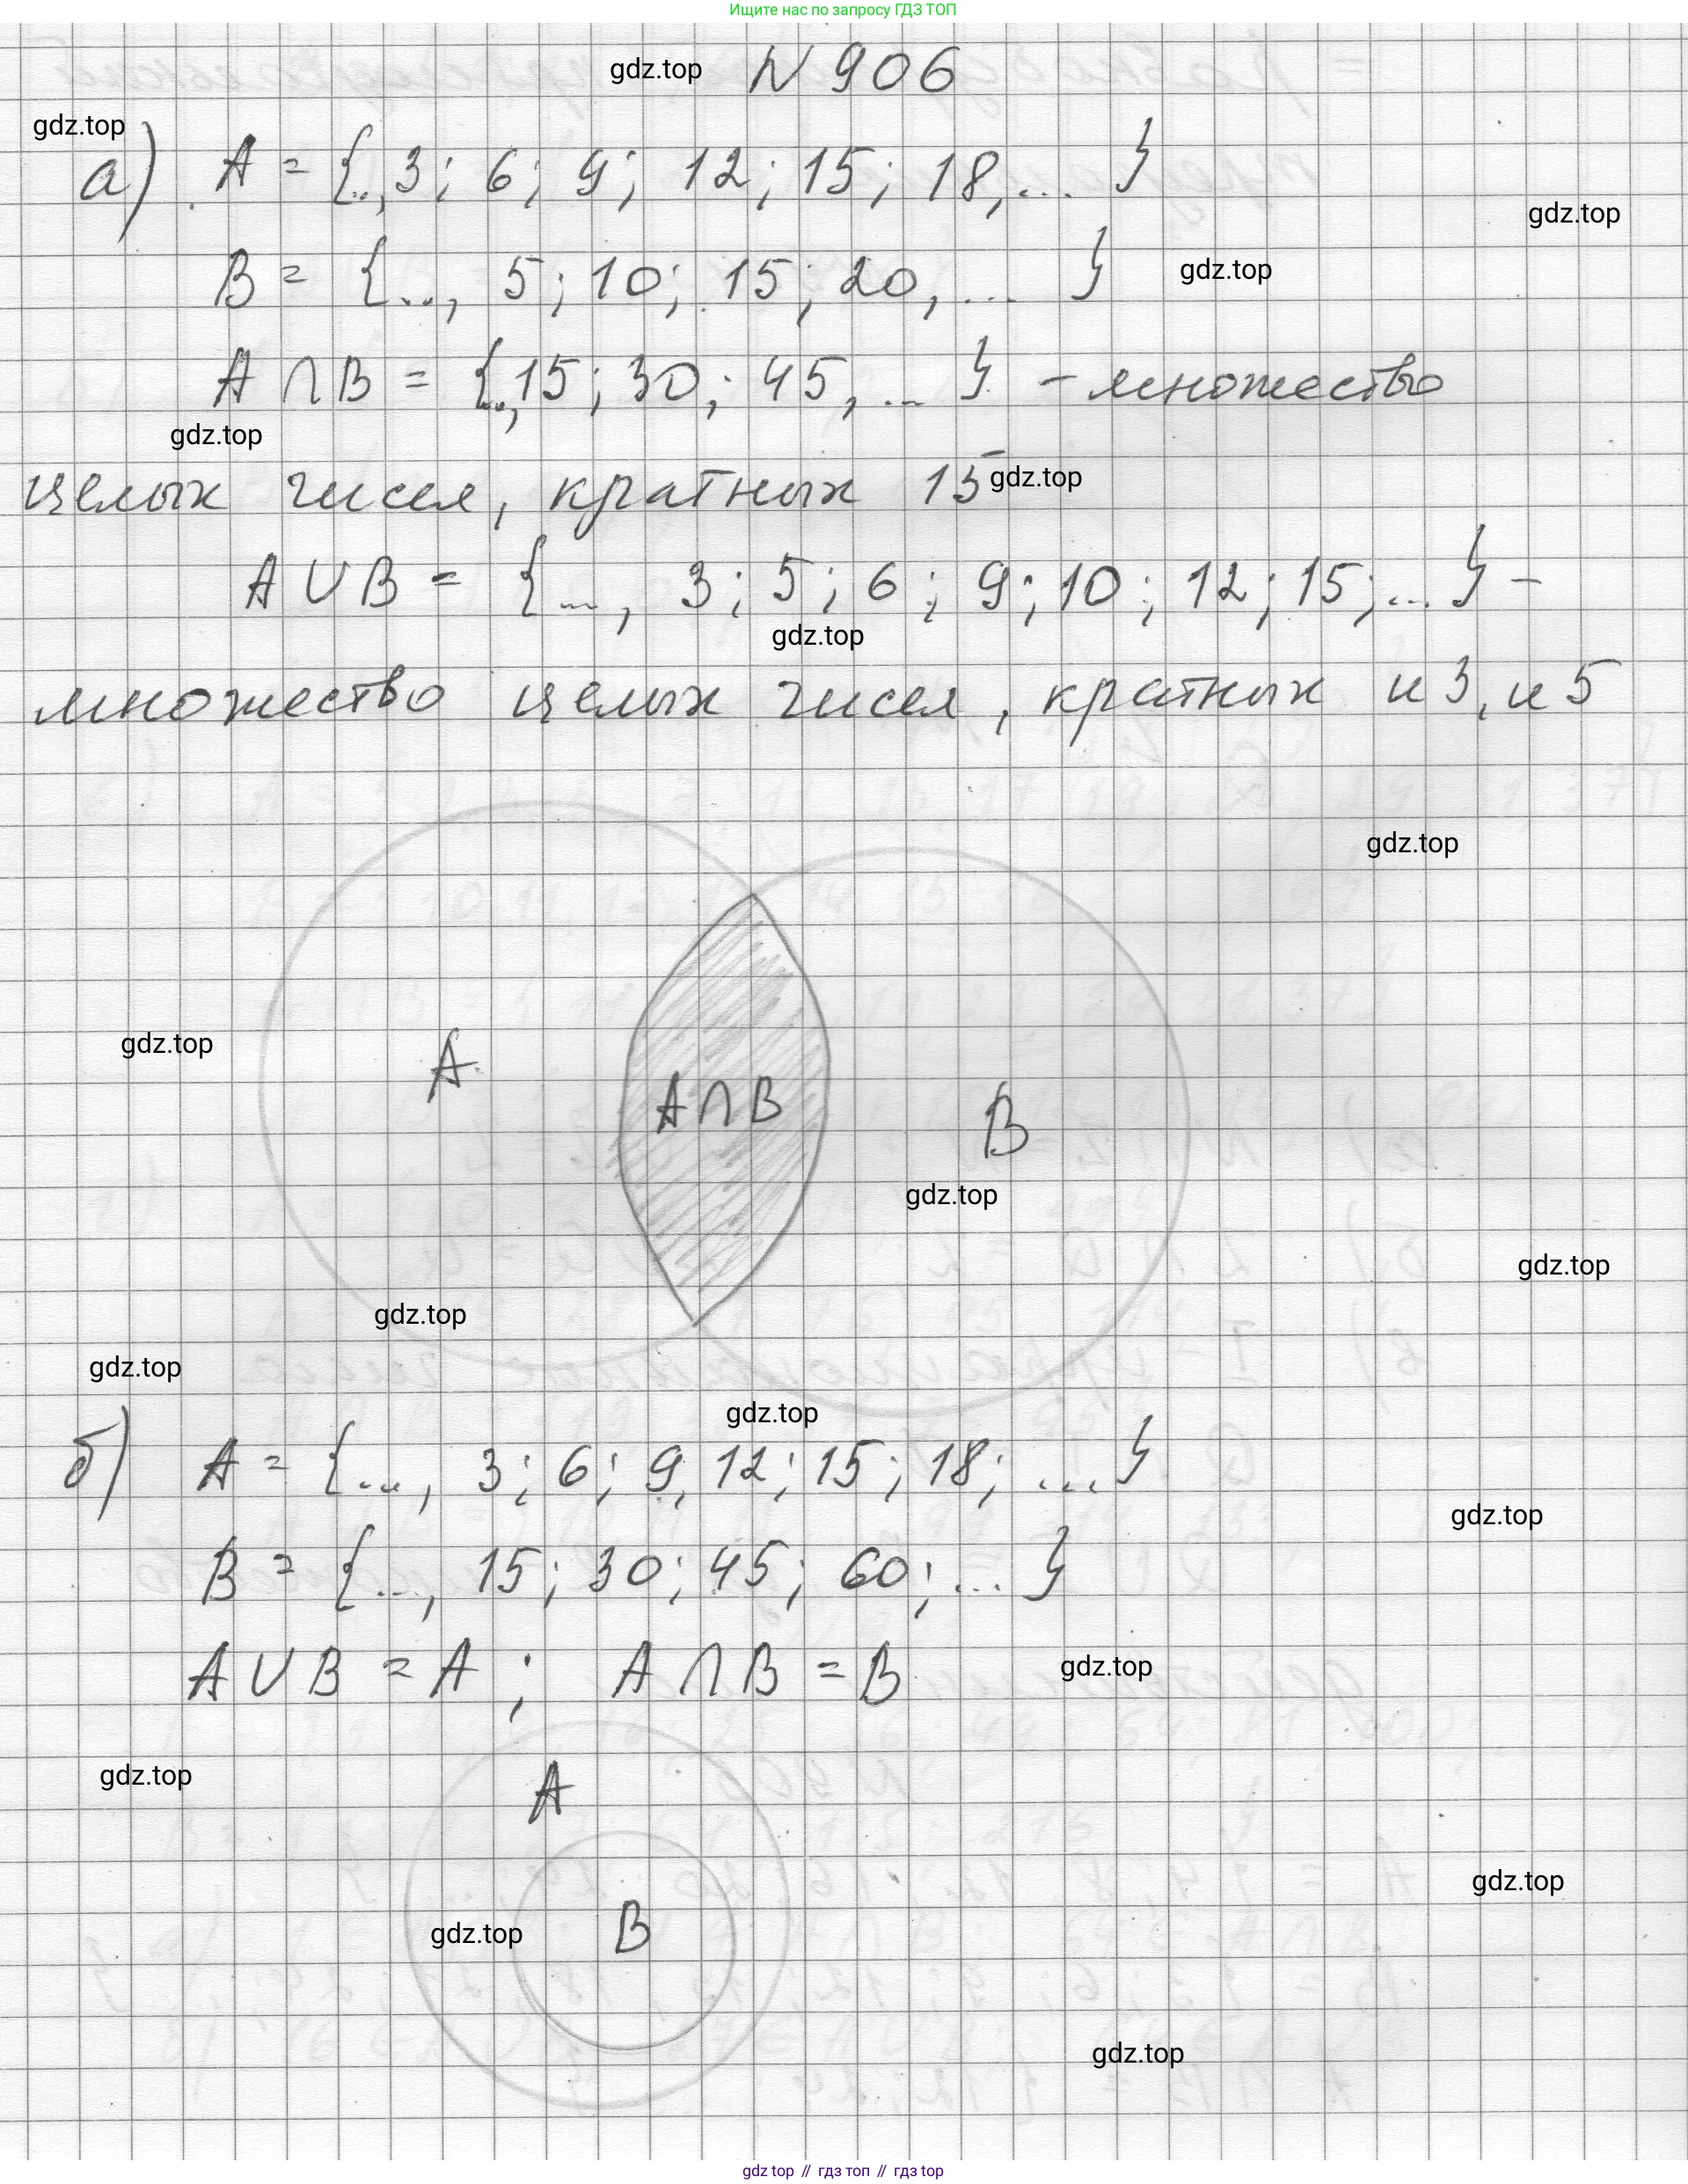 Ищите нас по запросу ГДЗ ТОП
gdz.top N 906
gdz.top
а) A = {.., 3; 6; 9; 12; 15; 18, ... }
gdz.top
B = {..., 5; 10; 15; 20, ... }
gdz.top
A ∩ B = {..,15; 30; 45, ... } - множество
gdz.top
целых чисел, кратных 15
gdz.top
A ∪ B = {..., 3; 5; 6; 9; 10; 12; 15; ... } -
gdz.top
множество целых чисел, кратных и 3, и 5
gdz.top
gdz.top
A
A ∩ B
B
gdz.top
gdz.top
gdz.top
gdz.top
gdz.top
б) A = {..., 3; 6; 9, 12; 15; 18; ... }
gdz.top
B = {..., 15; 30; 45; 60; ... }
A ∪ B = A ; A ∩ B = B
gdz.top
gdz.top
A
gdz.top
B
gdz.top
gdz.top
gdz top // гдз топ // гдз top